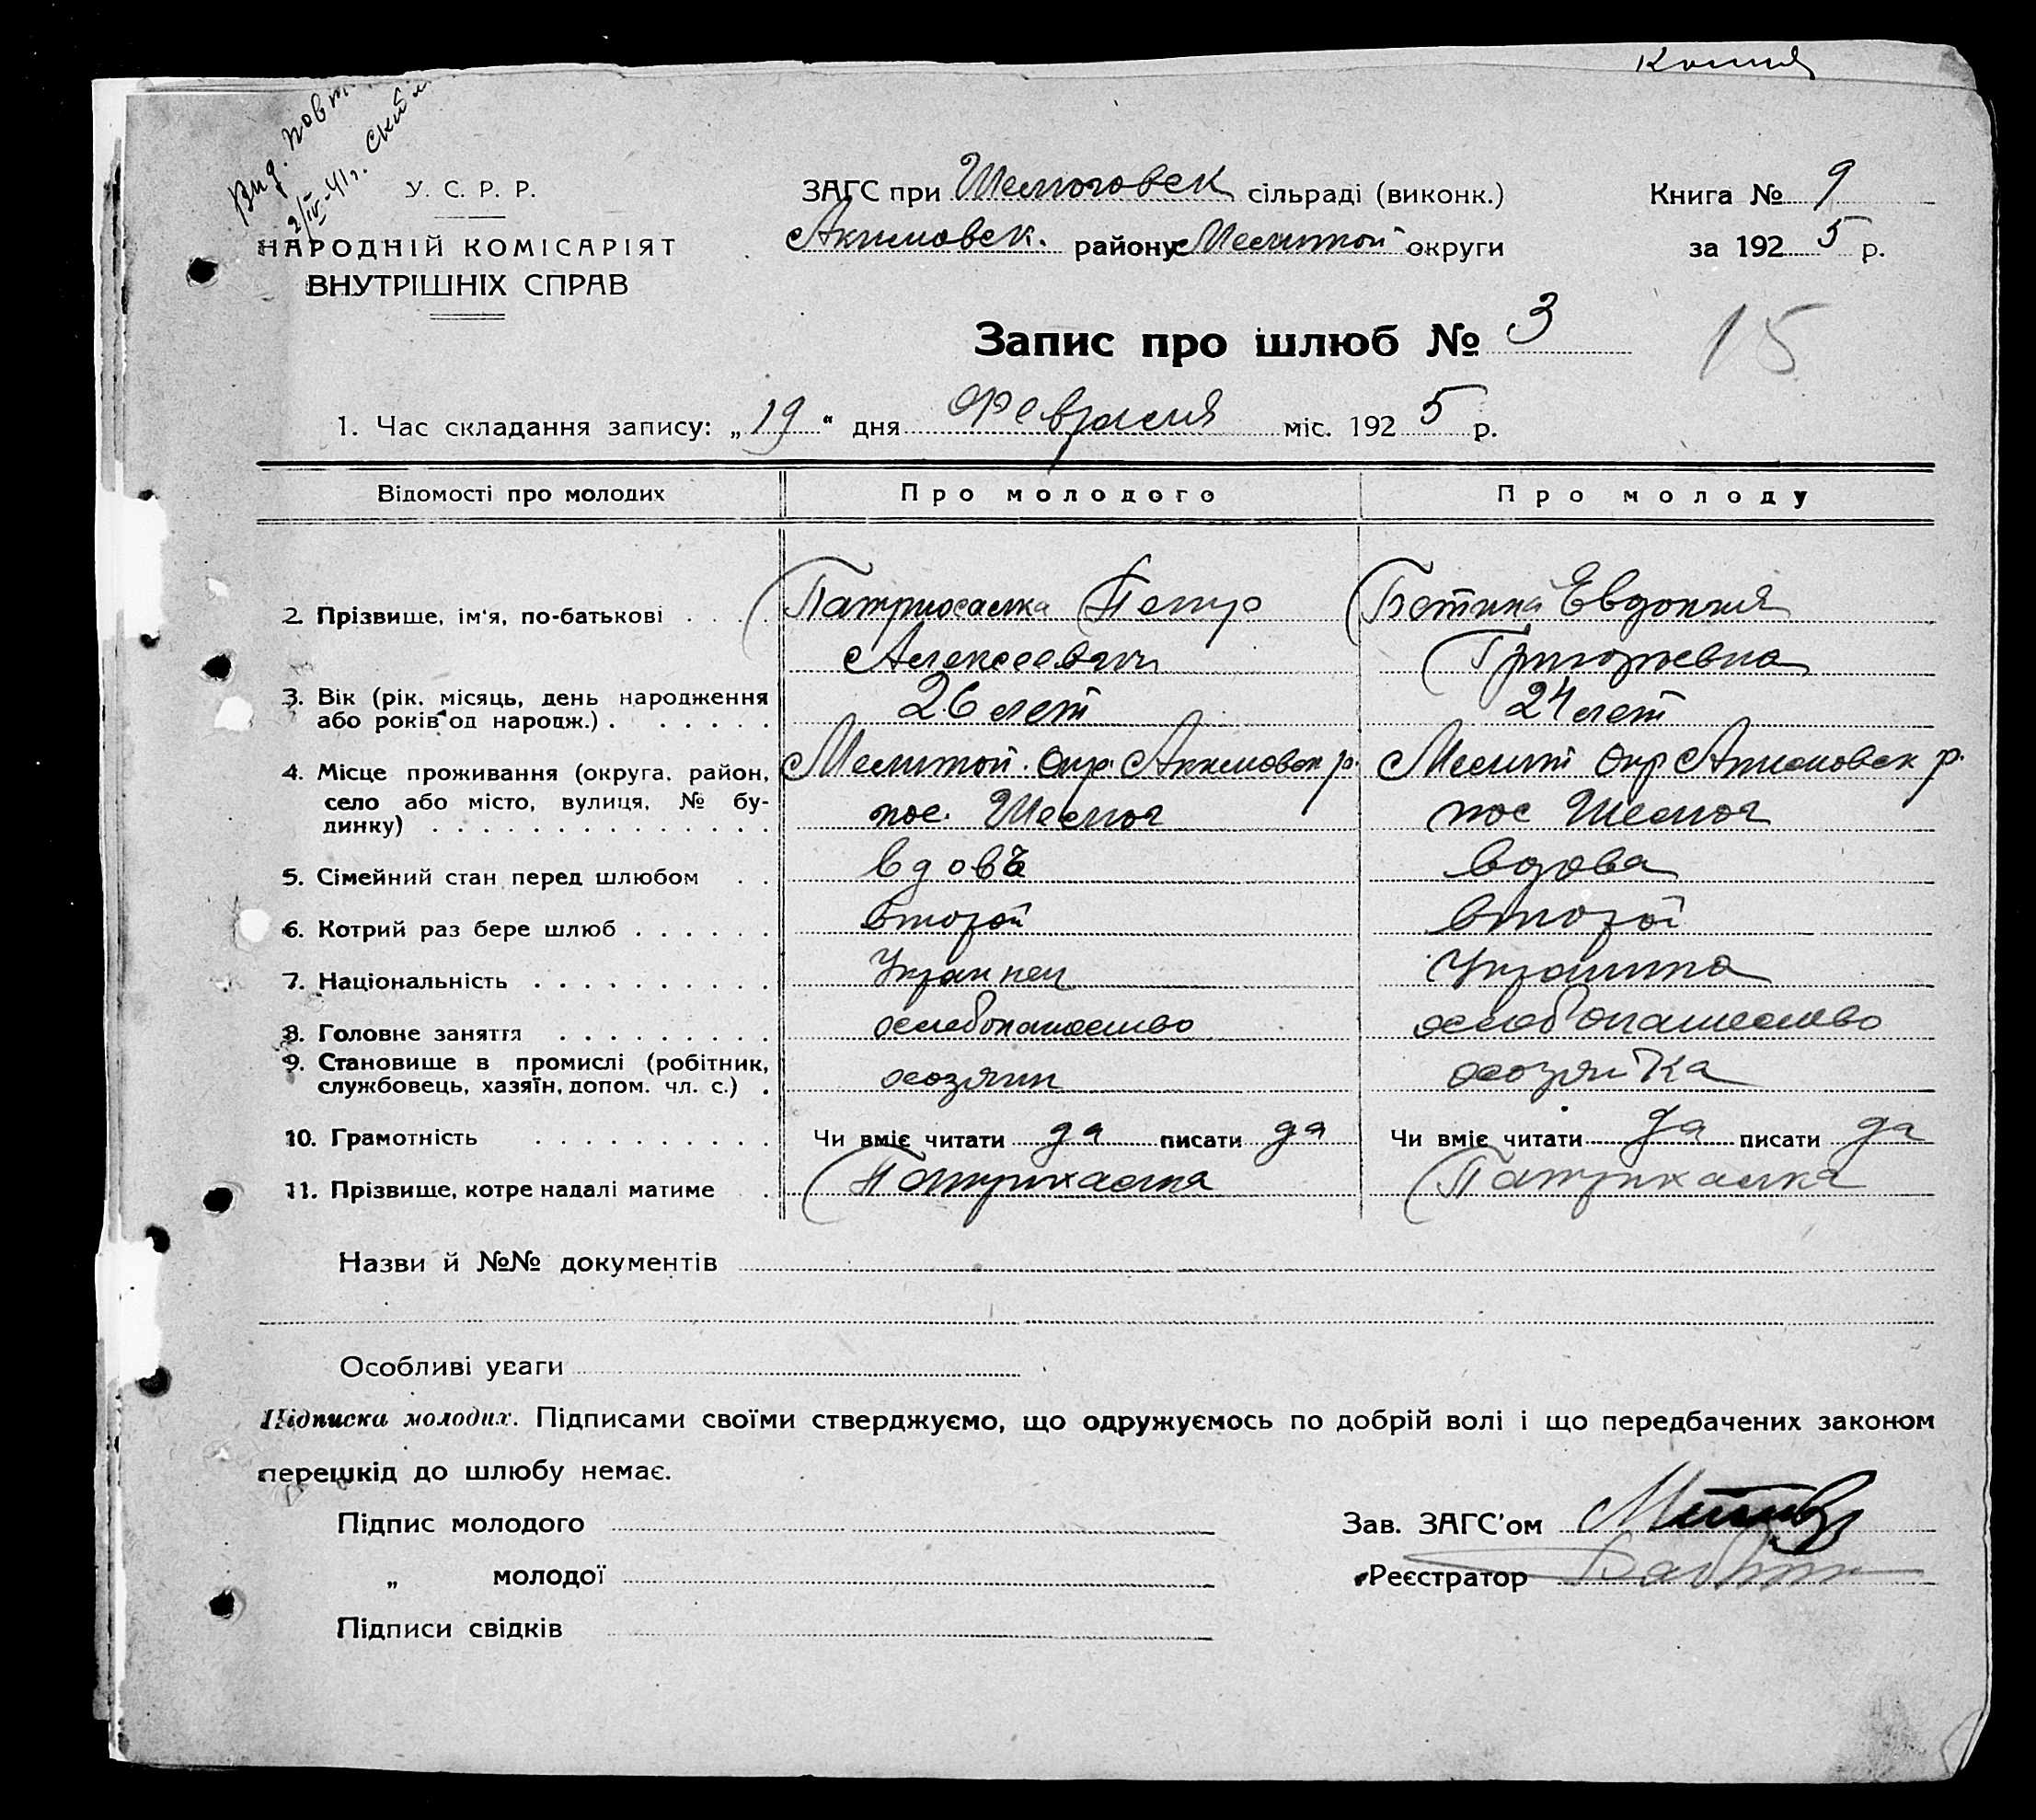 Копия
Вид. повт
2/IV-41г.
У. С. Р. Р.
НАРОДНІЙ КОМІСАРІЯТ
ВНУТРІШНІХ СПРАВ
ЗАГС при Шелюговск сільраді (виконк.)
Акимовск. району Мелитоп округи
Книга № 9
за 1925 р.
Запис про шлюб № 3
15
1. Час складання запису: „19“ дня Февраля міс. 1925 р.
Відомості про молодих Про молодого Про молоду
2. Прізвище, ім‘я, по-батькові . . . . Патрихалка Петро Ботина Евдокия
Алексеевич Григорьевна
3. Вік (рік, місяць, день народження
або років од народж.) . . . . . . 26 лет 24 лет
4. Місце проживання (округа, район, Мелитоп. окр. Акимовск р. Мелит окр Акимовск р.
село або місто, вулиця, № бу-
динку) . . . . . . . . . . . . . . пос. Шелюг пос Шелюг
5. Сімейний стан перед шлюбом . . вдовъ вдова
6. Котрий раз бере шлюб . . . . . . второй второй
7. Національність . . . . . . . . . . Украинец Украинка
8. Головне заняття . . . . . . . . . хлебопашество хлебопашество
9. Становище в промислі (робітник,
службовець, хазяїн, допом. чл. с.) . хозяин хозяйка
10. Грамотність . . . . . . . . . . Чи вміє читати да писати да Чи вміє читати да писати да
11. Прізвище, котре надалі матиме . Патрихалка Патрихалка
Назви й №№ документів
Особливі уваги
Підписка молодих. Підписами своїми стверджуємо, що одружуємось по добрій волі і що передбачених законом
перешкід до шлюбу немає.
Підпис молодого Зав. ЗАГС’ом
„ молодої Реєстратор
Підписи свідків